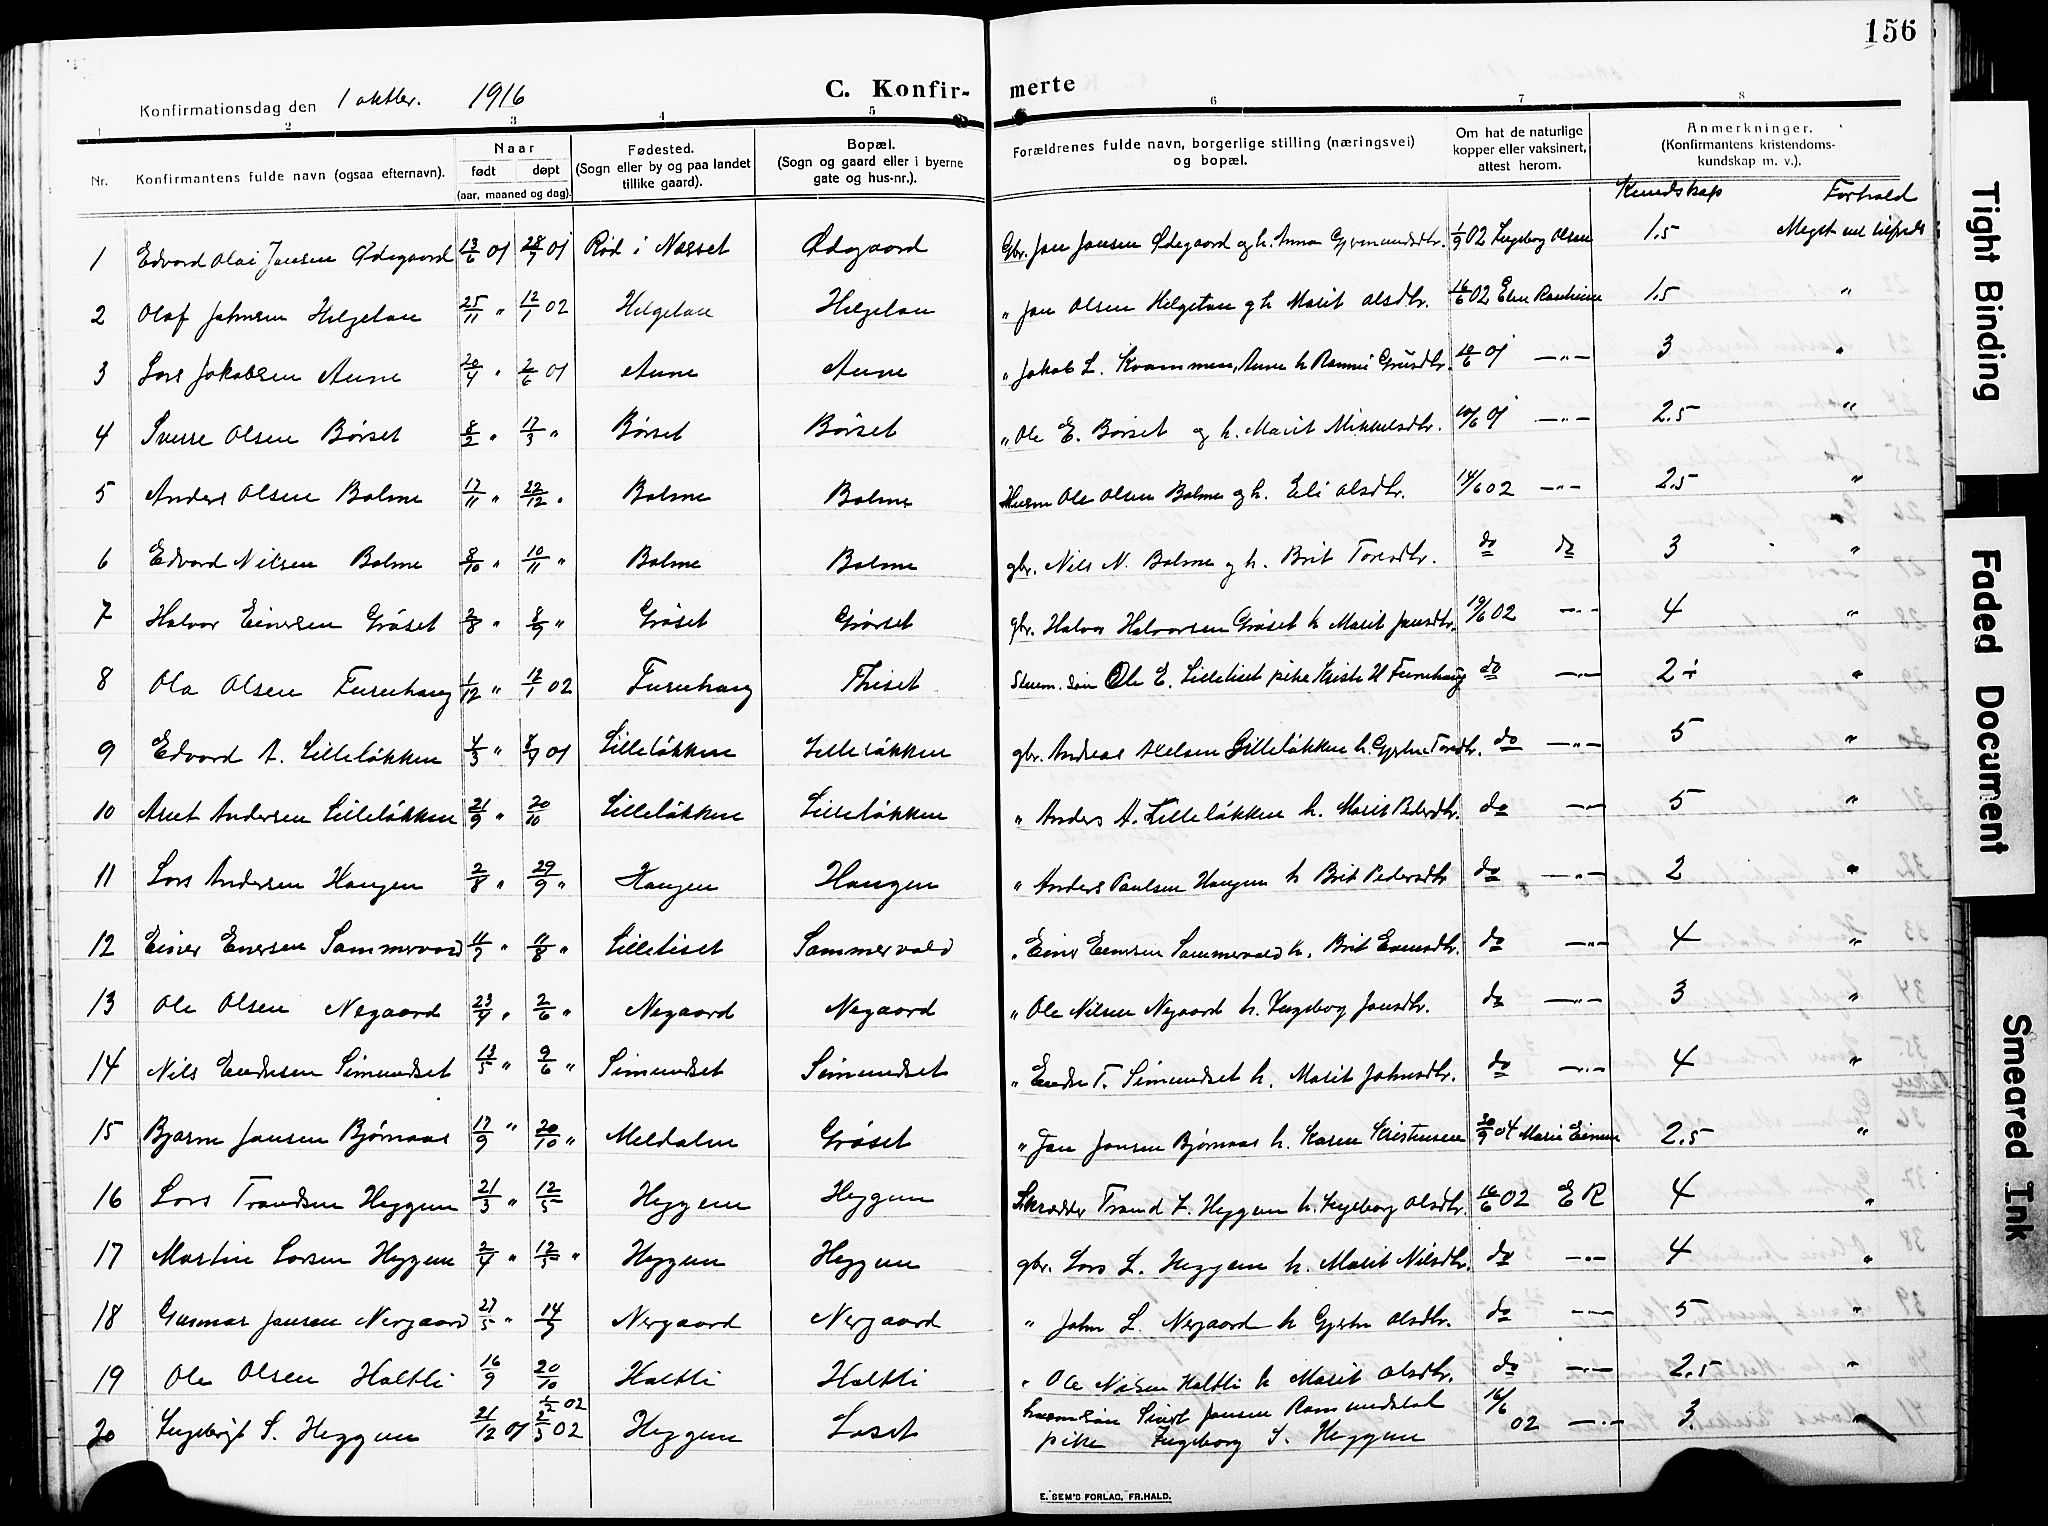 156
Konfirmationsdag den 1 oktbr. 1916
C. Konfir- merte
1 2 3 4 5 6 7 8
Nr.
Konfirmantens fulde navn (ogsaa efternavn).
Naar
født døpt
(aar, maaned og dag).
Fødested.
(Sogn eller by og paa landet
tillike gaard).
Bopæl.
(Sogn og gaard eller i byerne
gate og hus-nr.).
Forældrenes fulde navn, borgerlige stilling (næringsvei)
og bopæl.
Om hat de naturlige
kopper eller vaksinert,
attest herom.
Anmerkninger.
(Konfirmantens kristendoms-
kundskap m. v.).
Kundskap Forhold
1 Edvard Olai Jansen Ødegaard 13/6 01 28/7 01 Rød i Nesset Ødegaard Gbr. Jan Jansen Ødegaard og h. Anna 1/9 02 Ingeborg Olsen 1.5 Meget vel tilfreds
2 Olaf Johnsen Helgetun 25/11 " 12/1 02 Helgetun Helgetun " Jon Olsen Helgetun og h Marit Olsdtr. 16/6 02 Elen Ranheim 1.5 "
3 Lars Jakobsen Aune 20/4 " 2/6 01 Aune Aune " Jakob L. Kvammen, Aune h 10/6 01 —"— 3 "
4 Sverre Olsen Børset 8/2 " 17/3 " Børset Børset " Ole E. Børset og h. Marit Mikkelsdtr. 10/6 01 —"— 2.5 "
5 Anders Olsen Bolme 17/11 " 22/12 " Bolme Bolme Husm Ole Olsen Bolme og h. Eli Olsdtr. 14/6 02 —"— 2.5 "
6 Edvard Nilsen Bolme 8/10 " 10/11 " Bolme Bolme gbr. Nils N. Bolme og h. Brit Toresdtr. do do 3 "
7 Halvor Einersen Grøset 2/8 " 8/9 " Grøset Grøset gbr. Halvor Halvorsen Grøset h Marit Jansdtr. 10/6 02 —"— 4 "
8 Ola Olsen Furuhaug 1/12 " 12/1 02 Furuhaug Thiset Ole E. Lilletiset pike H Furuhaug do —"— 2÷ "
9 Edvard A. Lilleløkken 4/3 " 01 Lilleløkken Lilleløkken gbr. Andreas Lilleløkken h. Gjertru do —"— 5 "
10 Arnt Andersen Lilleløkken 21/9 " 20/10 Lilleløkken Lilleløkken " Anders A. Lilleløkken h. Marit do —"— 5 "
11 Lars Andersen Haugen 2/8 " 29/9 " Haugen Haugen " Anders Paulsen Haugen h Brit Pedersdtr do —"— 2 "
12 Einer Enersen Sammervold " 11/8 " Lilletiset Sammervold " Einer Sammervold h. Brit do —"— 4 "
13 Ole Olsen Negaard 23/4 " 2/6 " Negaard Negaard " Ole Nilsen Negaard h. Ingeborg Jonsdtr. do —"— 3 "
14 Nils Endresen Simundset 13/5 " 9/6 " Simundset Simundset " Endre T. Simundset h. Marit Johnsdtr. do —"— 4 "
15 Bjarne Jansen Bjørnaas 17/9 " 20/10 " Meldalen Grøset " Jan Jansen Bjørnaas h. Karen Kristensen 20/9 04 Marie 2.5 "
16 Lars Trondsen Heggem 21/3 " 12/5 Heggem Heggem Skrædder Trond L. Heggem h. Ingeborg Olsdtr. 16/6 02 E R 4 "
17 Martin Larsen Heggem 2/4 " 12/5 " Heggem Heggem gbr. Lars L. Heggem h. Marit Nilsdtr. do —"— 4 "
18 Gunnar Jansen Nergaard 27/5 " 14/7 Nergaard Nergaard " John L. Nergaard h Gjertru Olsdtr. do —"— 5 "
19 Ole Olsen Holtli 16/9 20/10 Holtli Holtli " Ole Nilsen Holtli h Marit Olsdtr. do —"— 2.5 "
20 Ingebrigt S. Heggem 21/12 01 2/5 02 Heggem Løset Sivert Jansen Romundstad 16/6 02 —"— 3. "
pike Ingeborg S. Heggem
E. SEM'S FORLAG, FR.HALD.
Tight Binding
Faded Document
Smeared Ink